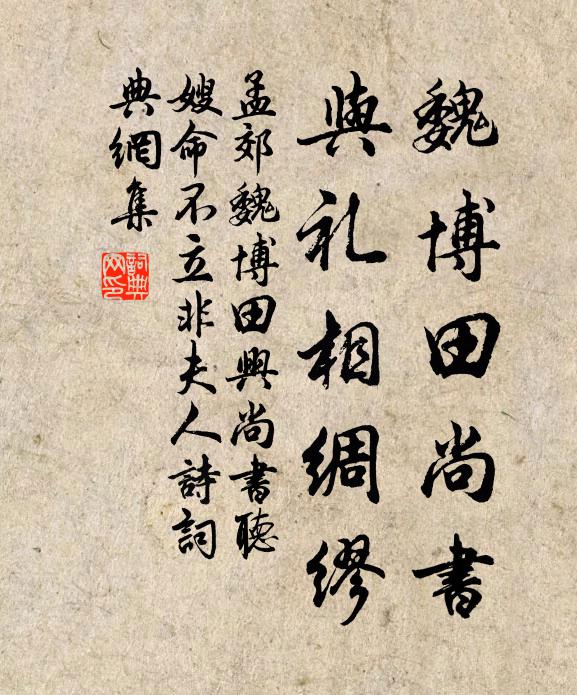 魏博田尚書
與礼相綢繆
孟郊魏博田興尚書聽
嫂命不立非夫人詩詞
典網集
詞典網印